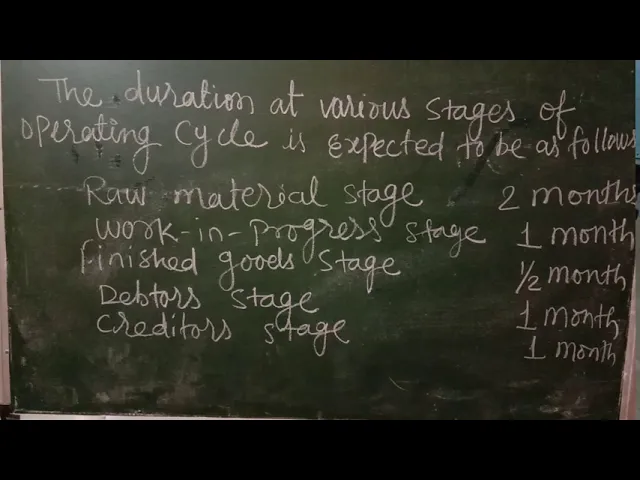 The duration at various stages of
operating cycle is expected to be as follows
Raw material stage 2 months
Work-in-Progress stage 1 month
Finished goods stage 1/2 month
Debtors stage 1 month
Creditors stage 1 month